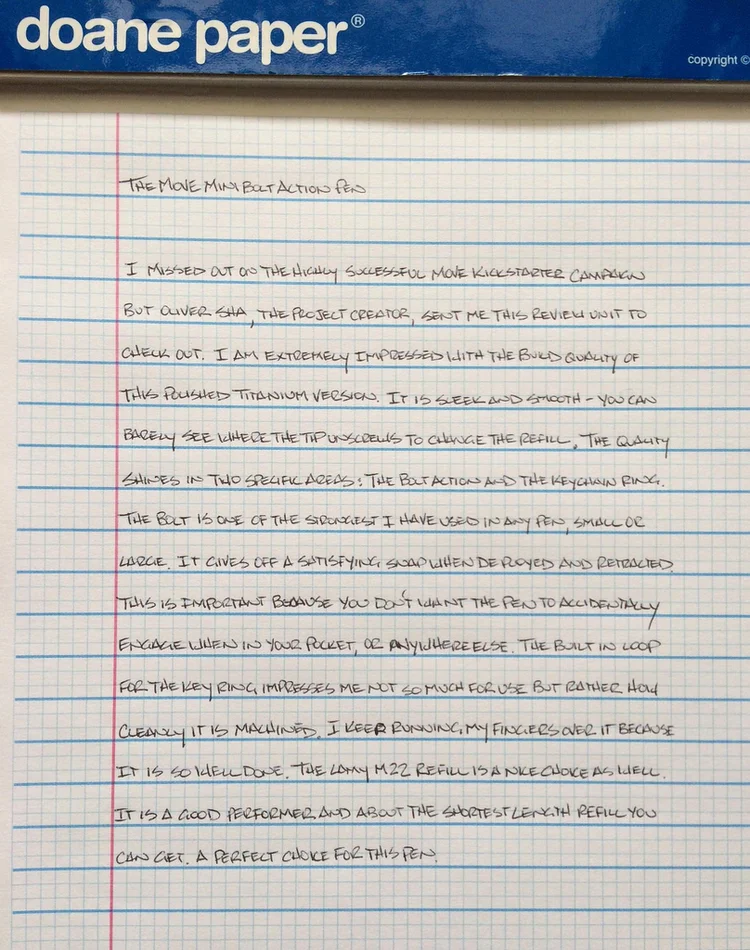 doane paper®
copyright ©
THE MOVE MINI BOLT ACTION PEN
I MISSED OUT ON THE HIGHLY SUCCESSFUL MOVE KICKSTARTER CAMPAIGN
BUT OLIVER SHA, THE PROJECT CREATOR, SENT ME THIS REVIEW UNIT TO
CHECK OUT. I AM EXTREMELY IMPRESSED WITH THE BUILD QUALITY OF
THIS POLISHED TITANIUM VERSION. IT IS SLEEK AND SMOOTH - YOU CAN
BARELY SEE WHERE THE TIP UNSCREWS TO CHANGE THE REFILL. THE QUALITY
SHINES IN TWO SPECIFIC AREAS: THE BOLT ACTION AND THE KEYCHAIN RING.
THE BOLT IS ONE OF THE STRONGEST I HAVE USED IN ANY PEN, SMALL OR
LARGE. IT GIVES OFF A SATISFYING SNAP WHEN DEPLOYED AND RETRACTED.
THIS IS IMPORTANT BECAUSE YOU DON'T WANT THE PEN TO ACCIDENTALLY
ENGAGE WHEN IN YOUR POCKET, OR ANYWHERE ELSE. THE BUILT IN LOOP
FOR THE KEY RING IMPRESSES ME NOT SO MUCH FOR USE BUT RATHER HOW
CLEANLY IT IS MACHINED. I KEEP RUNNING MY FINGERS OVER IT BECAUSE
IT IS SO WELL DONE. THE LAMY M22 REFILL IS A NICE CHOICE AS WELL.
IT IS A GOOD PERFORMER AND ABOUT THE SHORTEST LENGTH REFILL YOU
CAN GET. A PERFECT CHOICE FOR THIS PEN.